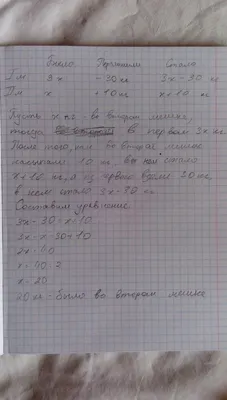 Было Изменили Стало
I м 3x -30 кг 3x-30 кг
II м x +10 кг x+10 кг
Пусть x кг - во втором мешке,
тогда в первом 3x кг.
После того, как во второй мешок
насыпали 10 кг, в нём стало
x+10 кг, а из первого взяли 30 кг,
в нём стало 3x-30 кг.
Составим уравнение
3x-30=x+10
3x-x=30+10
2x=40
x=40:2
x=20
20 кг - было во втором мешке